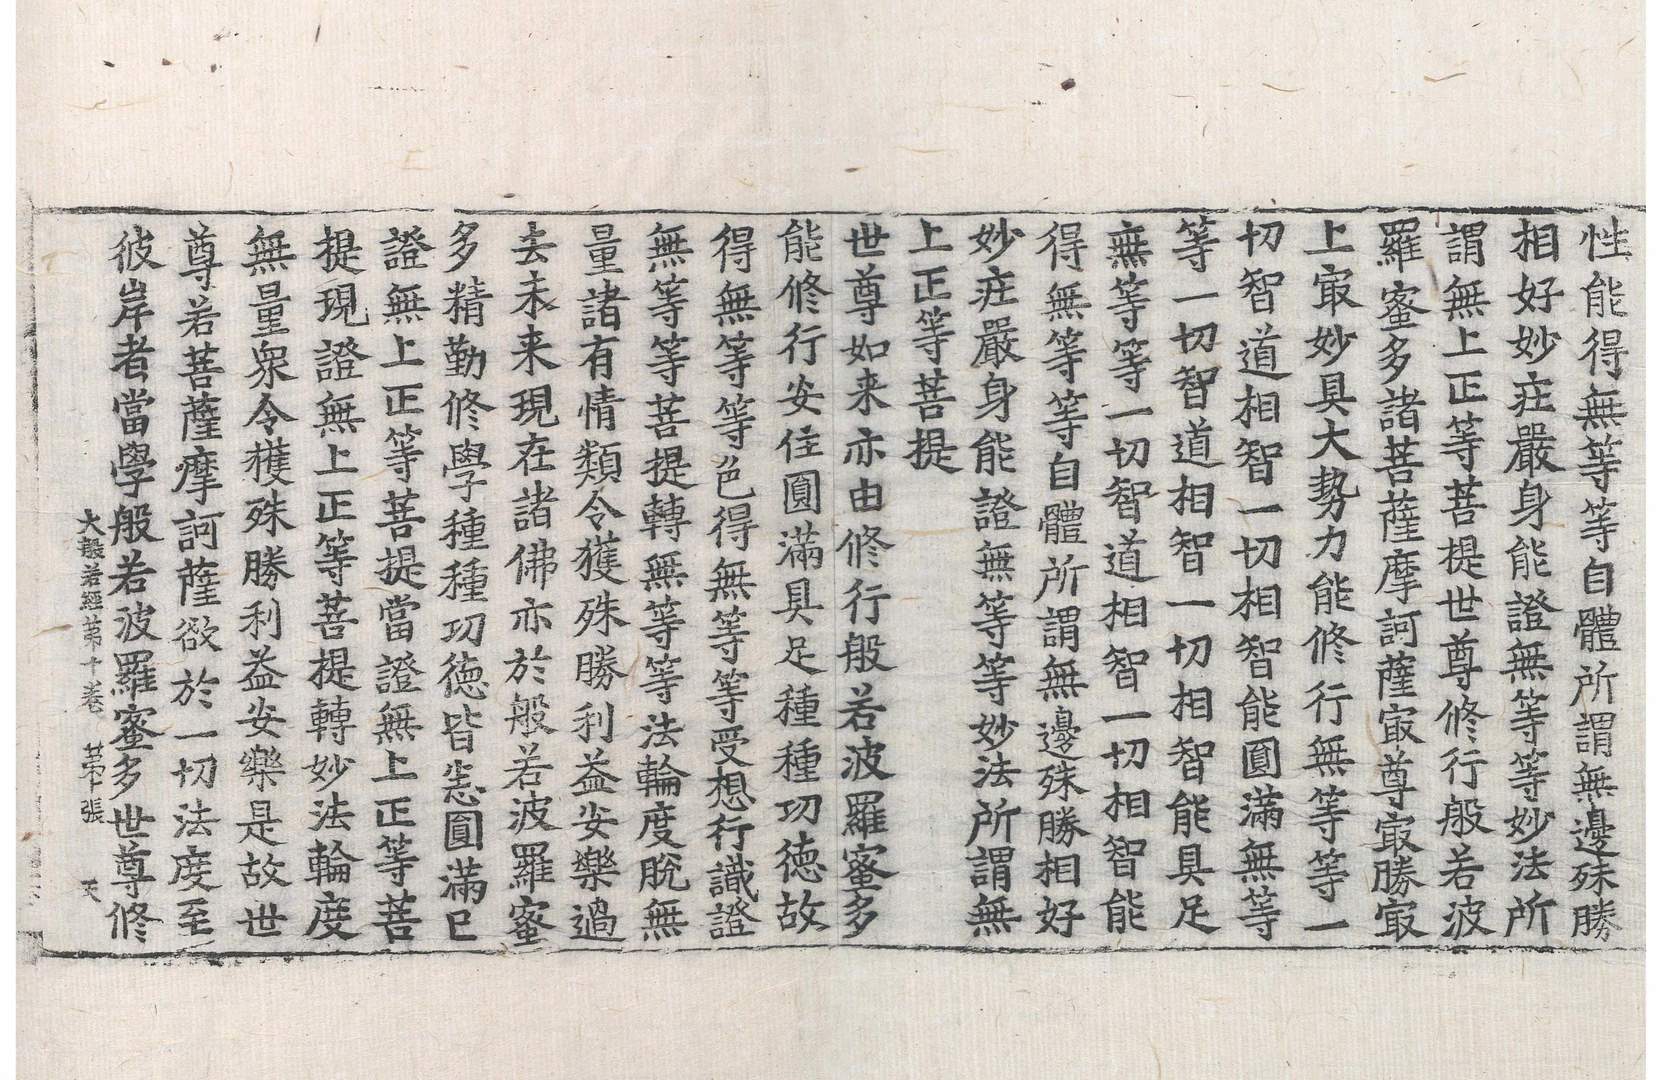 性能得無等等自體所謂無邊殊勝
相好妙庄嚴身能證無等等妙法所
謂無上正等菩提世尊修行般若波
羅蜜多諸菩薩摩訶薩㝡尊㝡勝㝡
上㝡妙具大勢力能修行無等等一
切智道相智一切相智能圓滿無等
等一切智道相智一切相智能具足
無等等一切智道相智一切相智能
得無等等自體所謂無邊殊勝相好
妙庄嚴身能證無等等妙法所謂無
上正等菩提
世尊如来亦由修行般若波羅蜜多
能修行安住圓滿具足種種功德故
得無等等色得無等等受想行識證
無等等菩提轉無等等法輪度脫無
量諸有情類令獲殊勝利益安樂過
去未来現在諸佛亦於般若波羅蜜
多精勤修學種種功德皆悉圓滿已
證無上正等菩提當證無上正等菩
提現證無上正等菩提轉妙法輪度
無量衆令獲殊勝利益安樂是故世
尊若菩薩摩訶薩欲於一切法度至
彼岸者當學般若波羅蜜多世尊修
大般若經第十卷 第十張 天